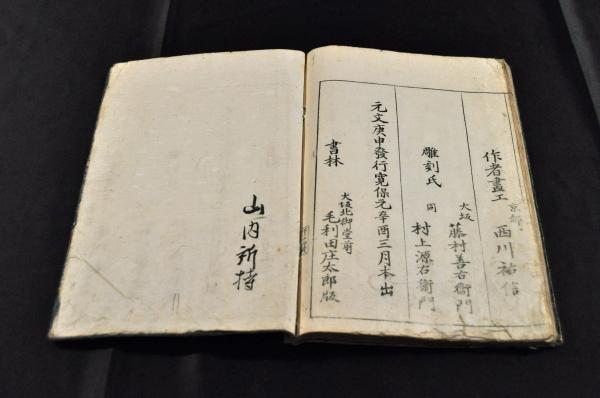 作者畫工 京都 西川祐信
彫刻氏 大坂 藤村善右衛門
同 村上源右衛門
元文庚申發行寛保元辛酉三月本出
書林 大坂北御堂前 毛利田庄太郎版
山内所持